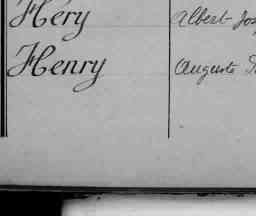 Héry Albert Jos
Henry Auguste